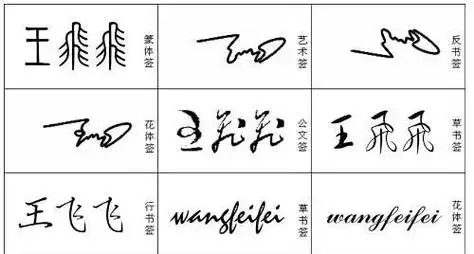 王飛飛
篆体签
艺术签
反书签
花体签
公文签
王飛飛
草书签
王飞飞
行书签
wangfeifei
草书签
wangfeifei
花体签